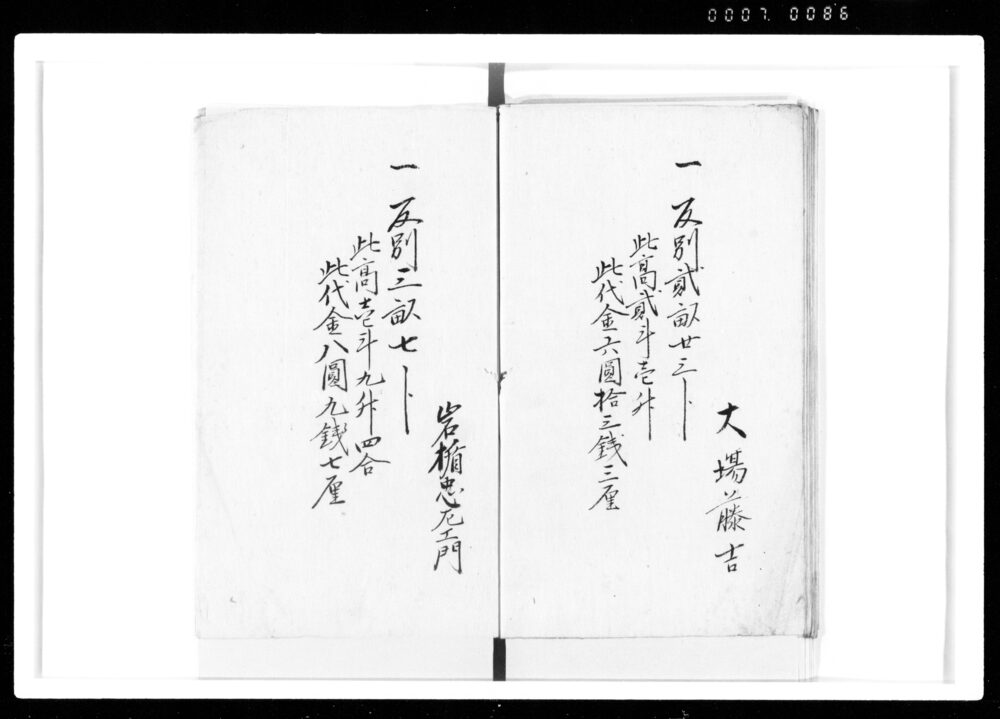 0007 0086
大場藤吉
一 反別貳畝廿三歩
此高貳斗壱升
此代金六圓拾三銭三厘
岩楯忠左エ門
一 反別三畝七歩
此高壱斗九升四合
此代金八圓九銭七厘